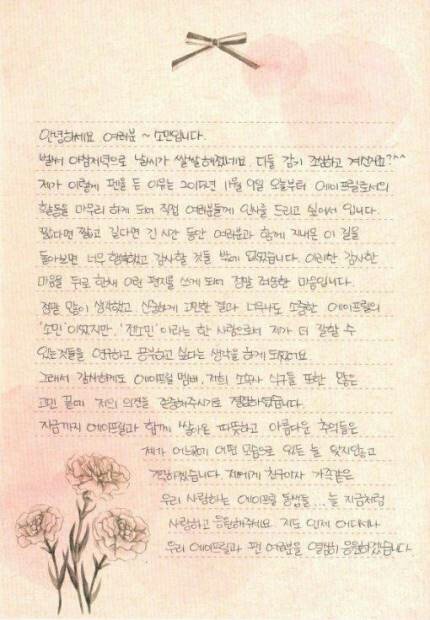 안녕하세요 여러분 ~ 소민입니다.
벌써 아침저녁으로 날씨가 쌀쌀해졌네요 다들 감기 조심하고 계신가요?^^
제가 이렇게 펜을 든 이유는 2015년 11월 9일 오늘부터 에이프릴로서의
활동을 마무리 하게 되어 직접 여러분들께 인사를 드리고 싶어서 입니다.
짧다면 짧고 길다면 긴 시간 동안 여러분과 함께 지내온 이 길을
돌아보면 너무 행복했고 감사할 것들 밖에 없었습니다. 이러한 감사한
마음을 뒤로 한채 이런 편지를 쓰게 되어 정말 죄송한 마음입니다.
정말 많이 생각했고 신중하게 고민한 결과 너무나도 소중한 에이프릴의
'소민'이었지만, '전소민'이라는 한 사람으로서 제가 더 잘할 수
있는것들을 연구하고 공부하고 싶다는 생각을 하게 되었어요.
그래서 감사하게도 에이프릴 멤버, 저희 소속사 식구들 또한 많은
고민 끝에 저의 의견을 존중해주시기로 결정하셨습니다.
지금까지 에이프릴과 함께 쌓아온 따뜻하고 아름다운 추억들은
제가 어느곳에 어떤 모습으로 있든 늘 잊지않고
간직하겠습니다. 저에게 친구이자 가족같은
우리 사랑하는 에이프릴 동생들... 늘 지금처럼
사랑하고 응원해주세요. 저도 언제 어디서나
우리 에이프릴과 팬 여러분을 열심히 응원하겠습니다.